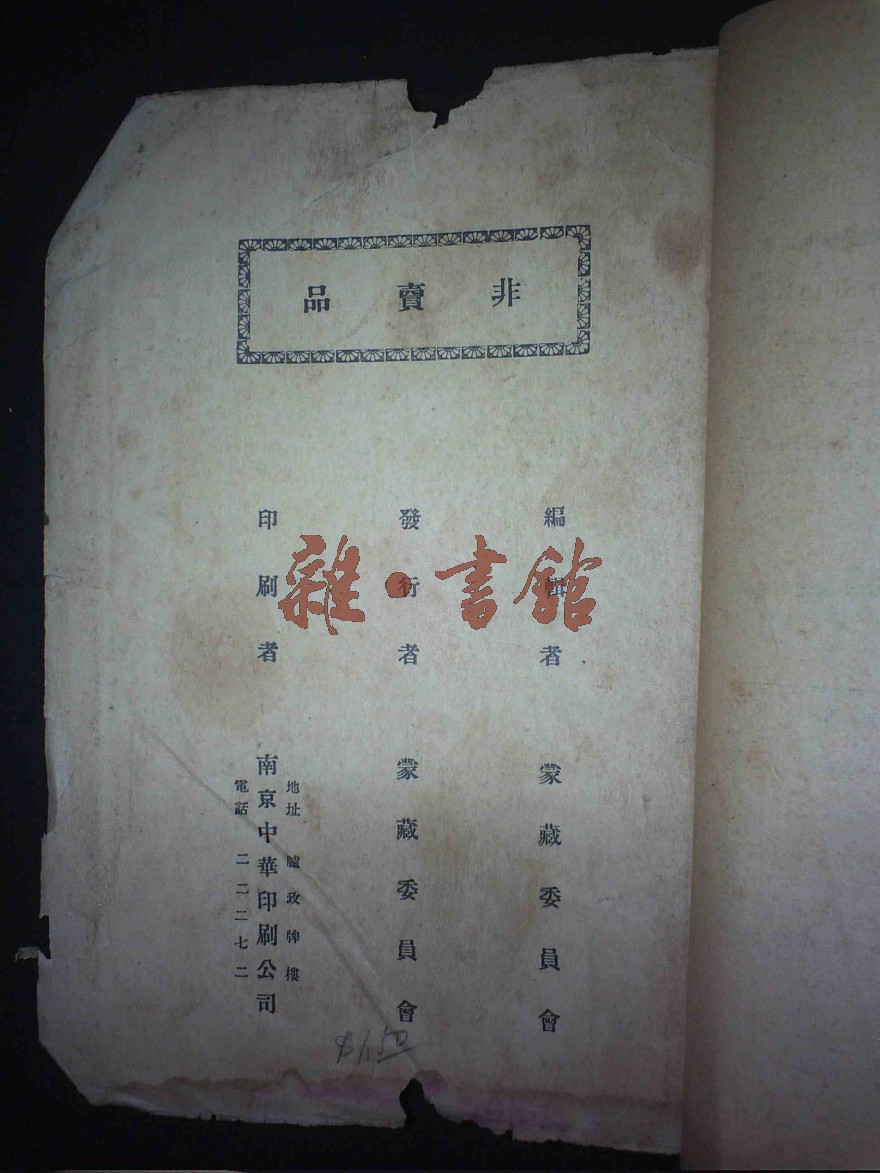 非賣品
編輯者 蒙藏委員會
發行者 蒙藏委員會
印刷者 南京中華印刷公司
地址 臚政牌樓
電話 二二二七二
雜·書館
$1.50